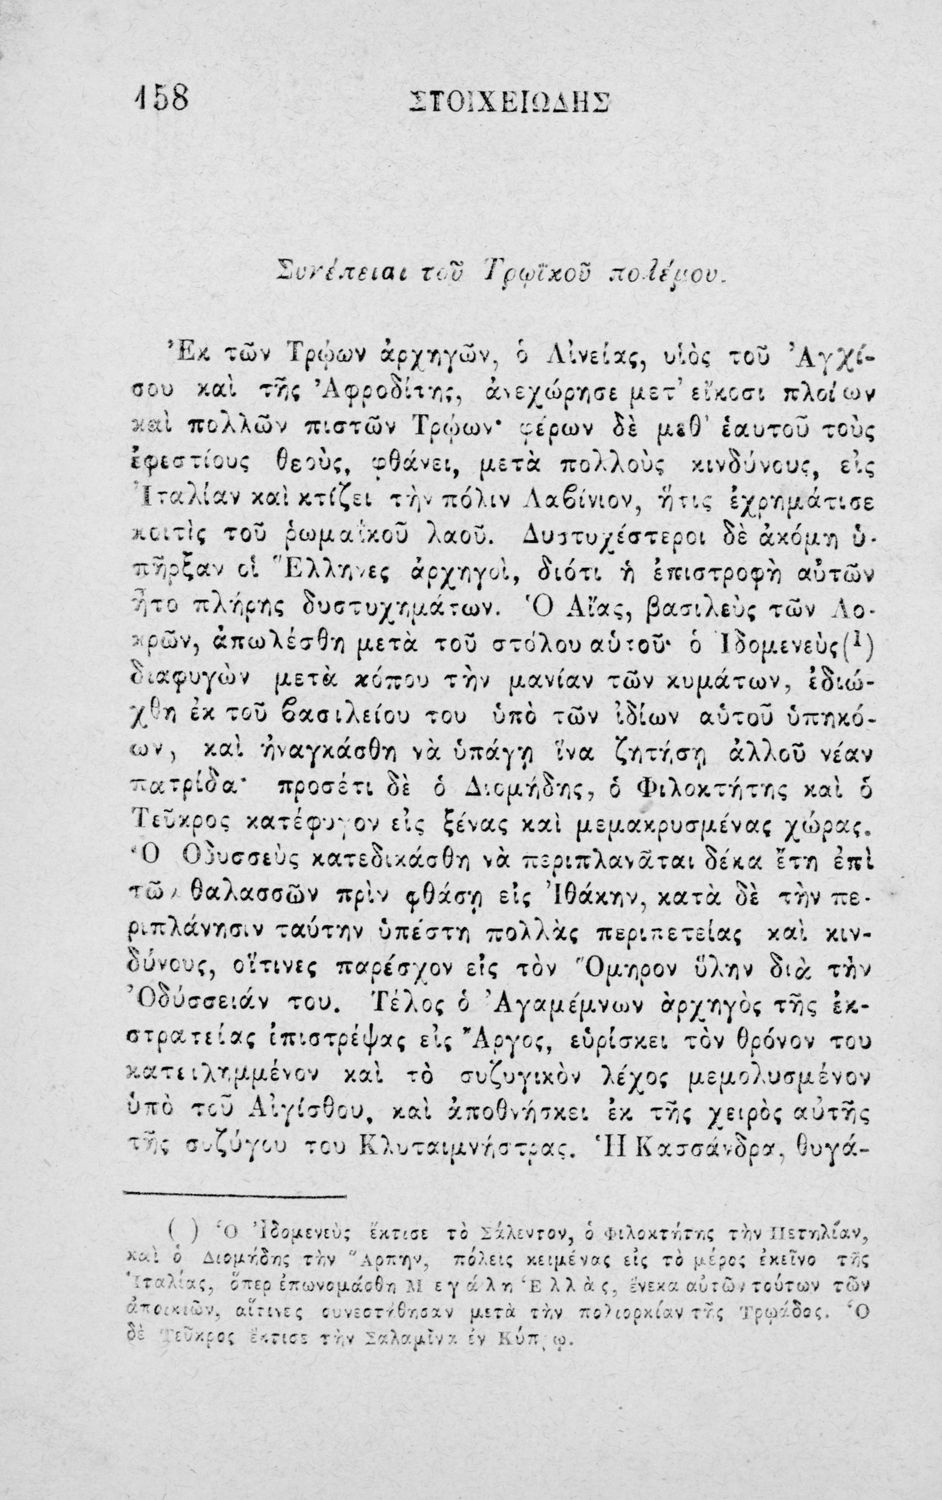 158 ΣΤΟΙΧΕΙΩΔΗΣ
Συνέπειαι τοῦ Τρωϊκοῦ πολέμου.
Ἐκ τῶν Τρώων ἀρχηγῶν, ὁ Αἰνείας, υἱὸς τοῦ Ἀγχί-
σου καὶ τῆς Ἀφροδίτης, ἀνεχώρησε μετ' εἴκοσι πλοίων
καὶ πολλῶν πιστῶν Τρώων· φέρων δὲ μεθ' ἑαυτοῦ τοὺς
ἐφεστίους θεοὺς, φθάνει, μετὰ πολλοὺς κινδύνους, εἰς
Ἰταλίαν καὶ κτίζει τὴν πόλιν Λαβίνιον, ἥτις ἐχρημάτισε
κοιτὶς τοῦ ῥωμαϊκοῦ λαοῦ. Δυστυχέστεροι δὲ ἀκόμη ὑ-
πῆρξαν οἱ Ἕλληνες ἀρχηγοὶ, διότι ἡ ἐπιστροφὴ αὐτῶν
ἦτο πλήρης δυστυχημάτων. Ὁ Αἴας, βασιλεὺς τῶν Λο-
κρῶν, ἀπωλέσθη μετὰ τοῦ στόλου αὑτοῦ· ὁ Ἰδομενεὺς(1)
διαφυγὼν μετὰ κόπου τὴν μανίαν τῶν κυμάτων, ἐδιώ-
χθη ἐκ τοῦ βασιλείου του ὑπὸ τῶν ἰδίων αὑτοῦ ὑπηκό-
ων, καὶ ἠναγκάσθη νὰ ὑπάγῃ ἵνα ζητήσῃ ἀλλοῦ νέαν
πατρίδα· προσέτι δὲ ὁ Διομήδης, ὁ Φιλοκτήτης καὶ ὁ
Τεῦκρος κατέφυγον εἰς ξένας καὶ μεμακρυσμένας χώρας.
Ὁ Ὀδυσσεὺς κατεδικάσθη νὰ περιπλανᾶται δέκα ἔτη ἐπὶ
τῶν θαλασσῶν πρὶν φθάσῃ εἰς Ἰθάκην, κατὰ δὲ τὴν πε-
ριπλάνησιν ταύτην ὑπέστη πολλὰς περιπετείας καὶ κιν-
δύνους, οἵτινες παρέσχον εἰς τὸν Ὅμηρον ὕλην διὰ τὴν
Ὀδύσσειάν του. Τέλος ὁ Ἀγαμέμνων ἀρχηγὸς τῆς ἐκ-
στρατείας ἐπιστρέψας εἰς Ἄργος, εὑρίσκει τὸν θρόνον του
κατειλημμένον καὶ τὸ συζυγικὸν λέχος μεμολυσμένον
ὑπὸ τοῦ Αἰγίσθου, καὶ ἀποθνήσκει ἐκ τῆς χειρὸς αὐτῆς
τῆς συζύγου του Κλυταιμνήστρας. Ἡ Κασσάνδρα, θυγά-
( ) Ὁ Ἰδομενεὺς ἔκτισε τὸ Σάλεντον, ὁ Φιλοκτήτης τὴν Πετηλίαν,
καὶ ὁ Διομήδης τὴν Ἄρπην, πόλεις κειμένας εἰς τὸ μέρος ἐκεῖνο τῆς
Ἰταλίας, ὅπερ ἐπωνομάσθη Μεγάλη Ἑλλὰς, ἕνεκα αὐτῶν τούτων τῶν
ἀποικιῶν, αἵτινες συνεστήθησαν μετὰ τὴν πολιορκίαν τῆς Τρῳάδος. Ὁ
δὲ Τεῦκρος ἔκτισε τὴν Σαλαμῖνα ἐν Κύπρῳ.